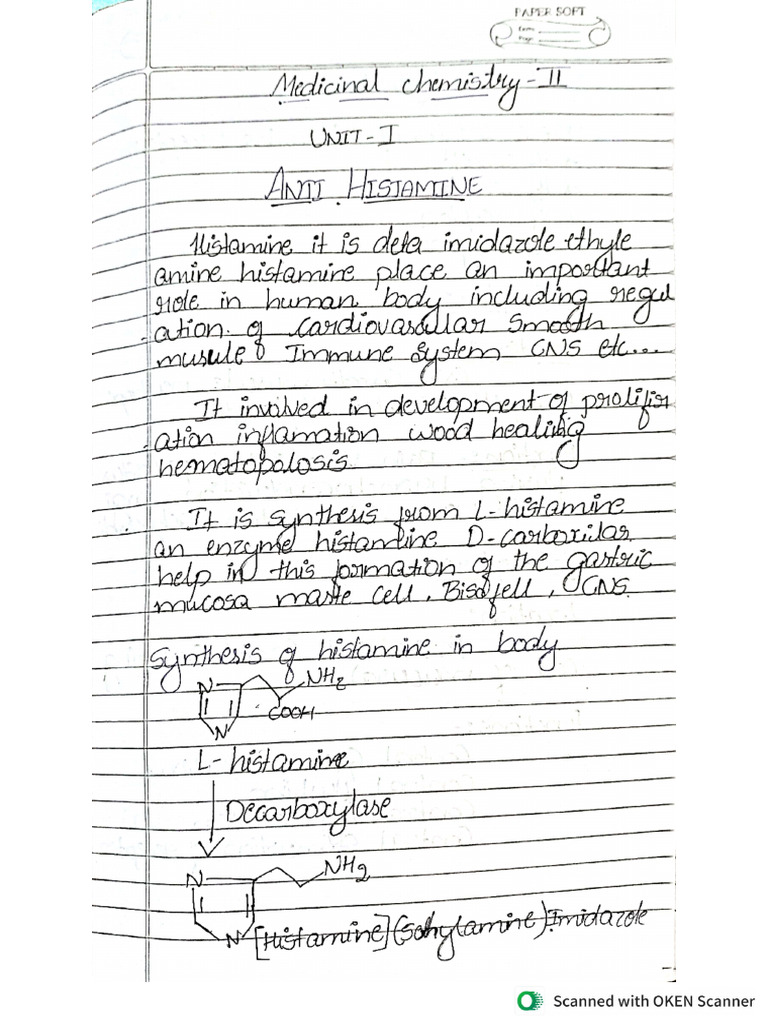 PAPER SOFT
Medicinal chemistry-II
UNIT-I
ANTI HISTAMINE
Histamine it is deta imidazole ethyle
amine histamine place an important
role in human body including regul
ation of cardiovascular Smooth
musule Immune System CNS etc...
It involved in development of prolifir
ation inflamation wood healing
hematopolosis
It is synthesis from L-histamine
an enzyme histamline D-carboxilar
help in this formation of the gastric
mucosa maste cell, Bisofell, CNS.
Synthesis of histamine in body
N NH2
COOH
N
L-histamine
Decarboxylase
N NH2
N [Histamine] Imidazole
Scanned with OKEN Scanner